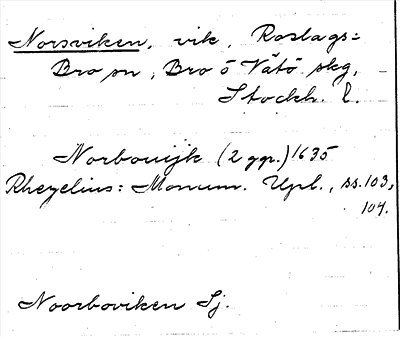 Norsviken, vik, Roslags=
Bro sn, Bro ō Vätö skg,
Stockh. l.
Norbouijk (2 ggr.) 1635
Rhezelius: Monum. Upl., ss. 103,
104.
Noorboviken Sj.